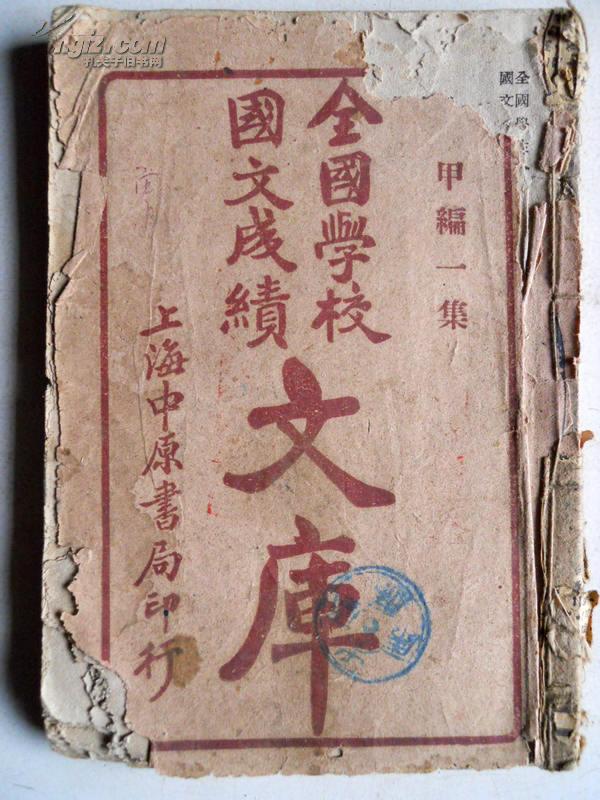 甲編一集
全國學校
國文成績
文庫
上海中原書局印行
全國學
國文
孔夫子旧书网